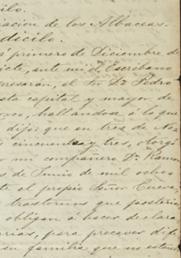 cilo.
nacion de los Albaceas.
dicilo.
primero de Diciembre de
siete, ante mi el Escribano
presarán, el Sr. Dn. Pedro
esta capital y mayor de
hallandose, á lo que
dijo: que en tres de No
cincuenta y tres, otorgó
mi compañero Dn. Ramon
de Junio de mil ocho
el propio Señor
trastornos que posterio
obligan á hacer declara
rias, para precaver dif
su familia, que no estan